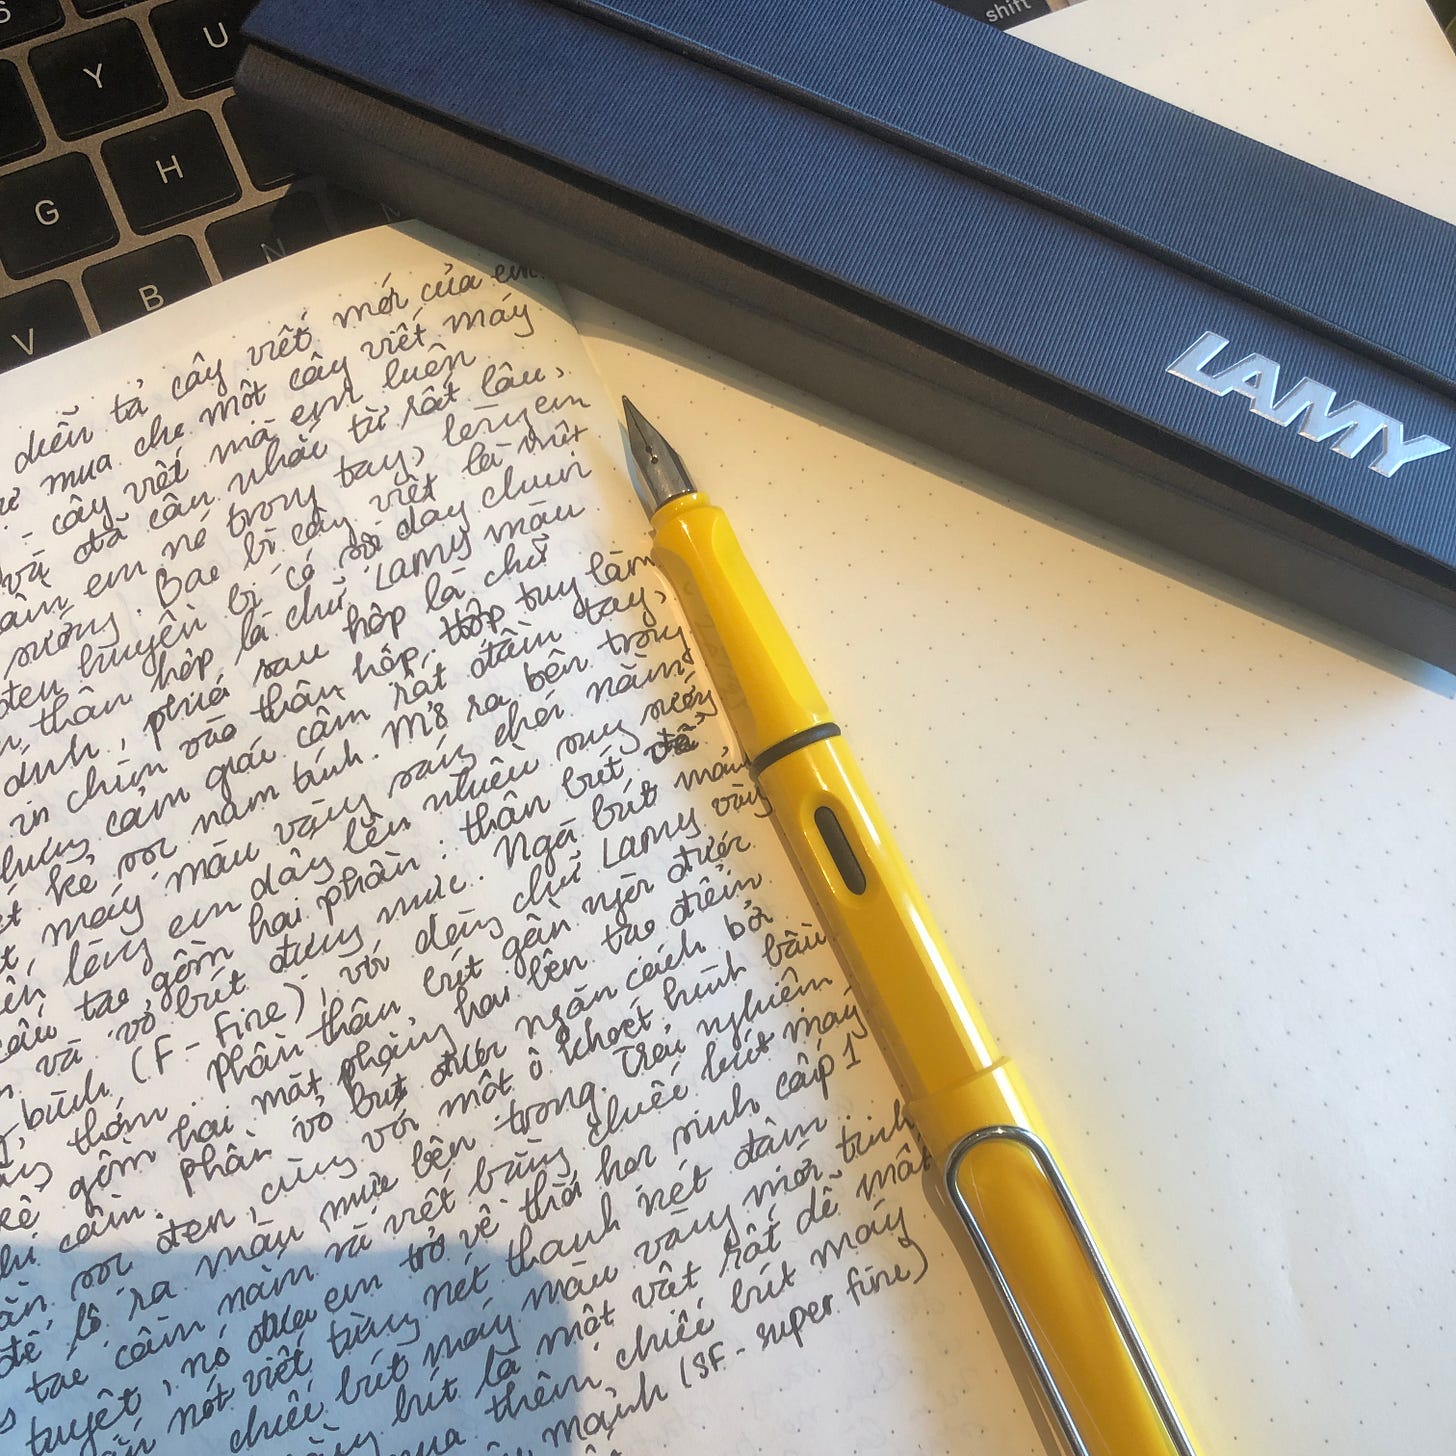 Y
U
shift
G
H
V
B
N
LAMY
diễn tả cây viết mới của em
mua cho một cây viết máy
- cây viết mà em luôn
và đã cân nhắc từ rất lâu,
em nó trong tay, lòng em
sướng. Bao bì cây viết là một
đen huyền bí có sợi dây chun
thân hộp là chữ LAMY màu
dính, phía sau hộp là chữ
in chìm vào thân hộp. Hộp tuy làm
nhưng cảm giác cầm rất đầm tay,
kế sọc nam tính. Mở ra bên trong
máy màu vàng sáng chói nằm
lòng em dâng lên nhiều sung sướng
cấu tạo gồm hai phần: thân bút
và vỏ bút đựng mực. Ngòi bút mảnh
bình (F - Fine), với dòng chữ LAMY vàng
thơm. Phần thân bút gần ngòi được
kế gồm hai mặt phẳng hai bên tạo điểm
khi cầm. Phần vỏ bút được ngăn cách bởi
sọc đen, cùng với một ô khoét hình bầu
để lộ ra màu mực bên trong. Trải nghiệm
tác cầm nắm và viết bằng chiếc bút máy
tuyệt, nó đưa em trở về thời học sinh cấp 1
nót viết từng nét thanh nét đậm.
chiếc bút máy màu vàng mới tinh
bút là một vật rất dễ mất
mua thêm chiếc bút máy
mảnh (SF - super fine)